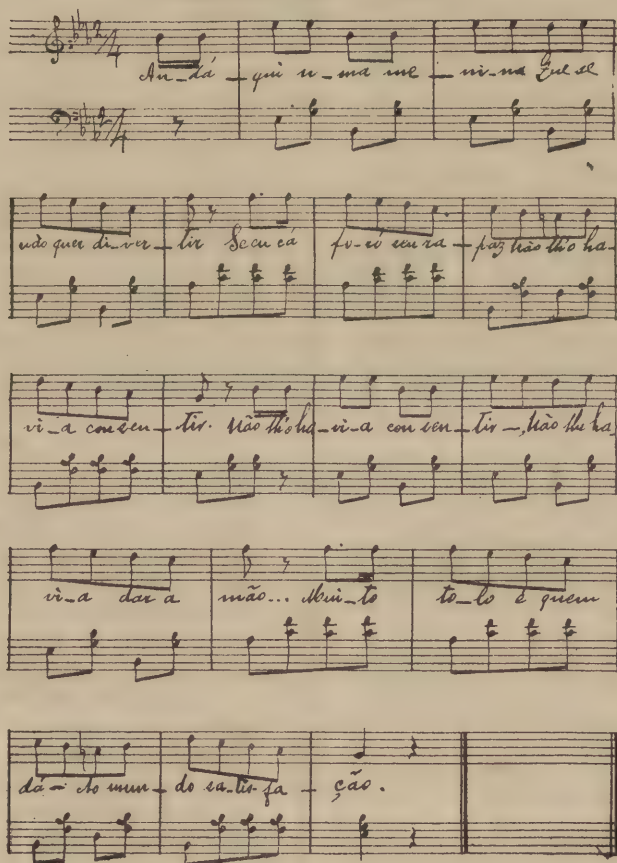 2/4 An_dá _ qui u_ma me _ ni_na Que se
2/4
não quer di_ver _ tir Se eu cá fo_ra _ paz Não lh'o ha_
vi_a consen _ tir. Não lh'o ha_vi_a consen _ tir_, Não lhe ha_
vi_a dar a mão... Mui_to to_lo é quem
dá _ Ao mun _ do sa_tis_fa _ ção.